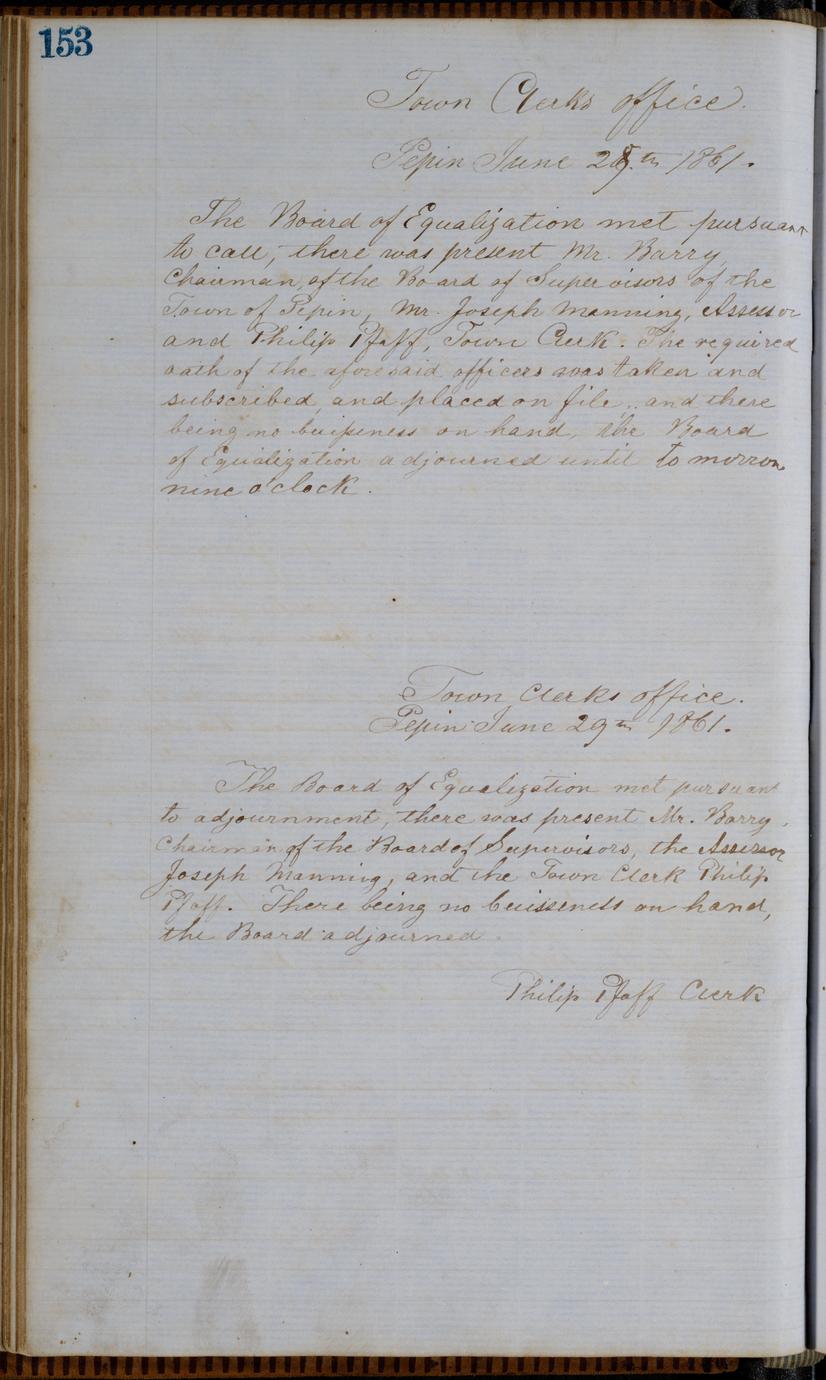 153
Town Clerks office.
Pepin June 28th 1861.
The Board of Equalization met pursuant
to call, there was present Mr. Barry
Chairman, of the Board of Supervisors of the
Town of Pepin, Mr. Joseph Manning, Assessor
and Philip Pfaff, Town Clerk. The required
oath of the aforesaid officers was taken and
subscribed, and placed on file, and there
being no buisseness on hand, the Board
of Equalization adjourned until to morrow
nine o'clock.
Town Clerks office.
Pepin June 29th 1861.
The Board of Equalization met pursuant
to adjournment, there was present Mr. Barry,
Chairman of the Board of Supervisors, the Assessor
Joseph Manning, and the Town Clerk Philip
Pfaff. There being no buisseness on hand,
the Board adjourned.
Philip Pfaff Clerk